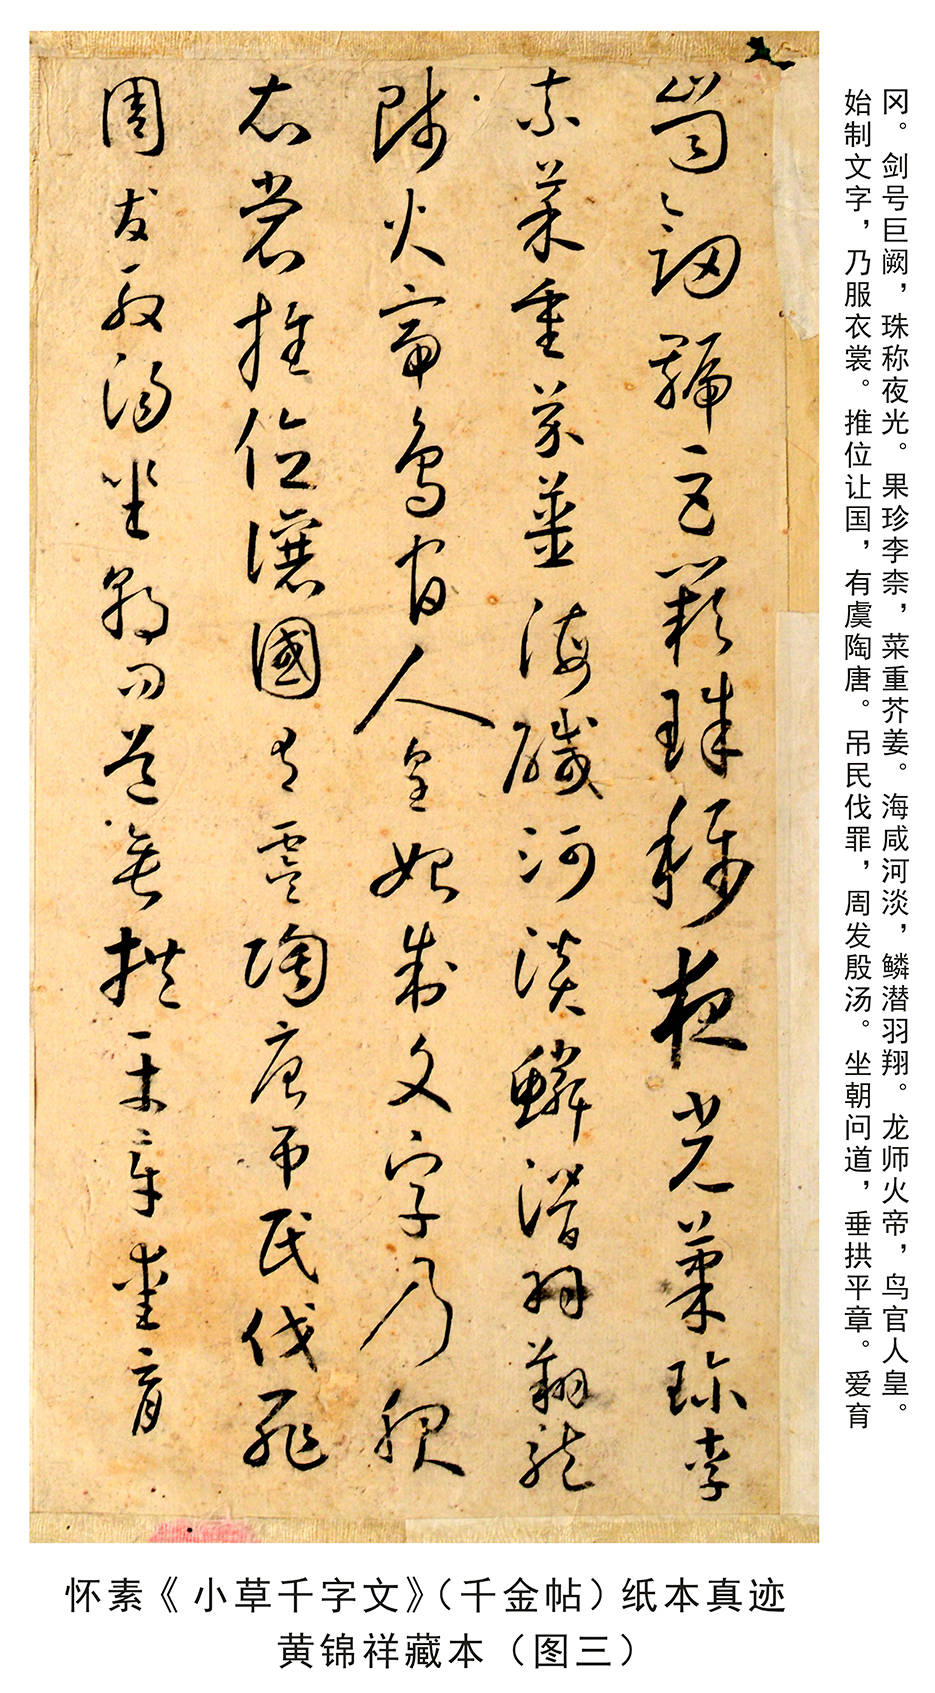 冈。剑号巨阙，珠称夜光。果珍李柰，菜重芥姜。海咸河淡，鳞潜羽翔。龙师火帝，鸟官人皇。
始制文字，乃服衣裳。推位让国，有虞陶唐。吊民伐罪，周发殷汤。坐朝问道，垂拱平章。爱育
崗劔號巨闕珠稱夜光菓珍李
柰菜重芥薑海鹹河淡鱗潛羽翔龍
師火帝鳥官人皇始制文字乃服
衣裳推位讓國有虞陶唐吊民伐罪
周發殷湯坐朝問道垂拱平章愛育
怀素《小草千字文》（千金帖）纸本真迹
黄锦祥藏本（图三）